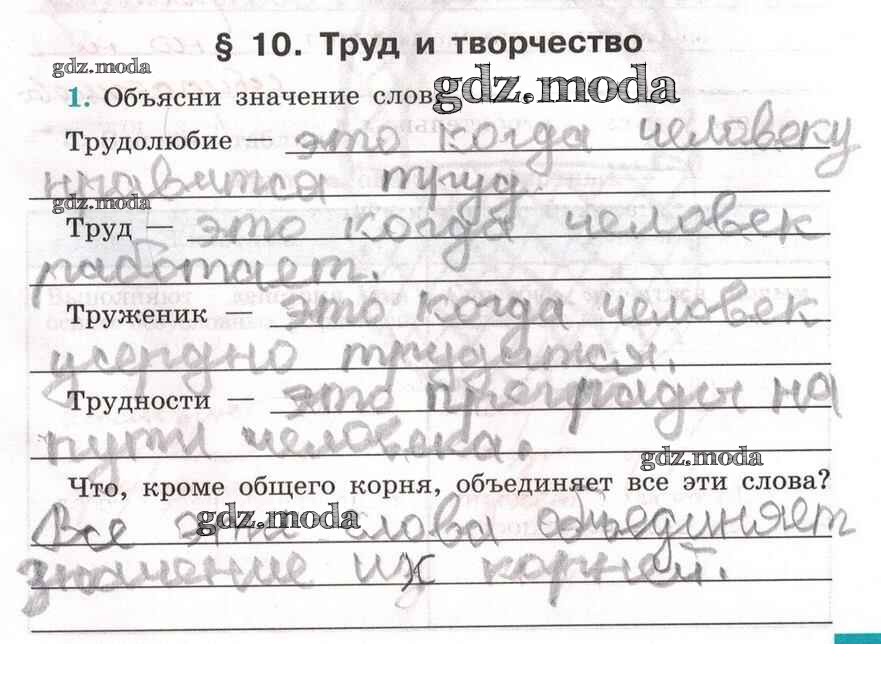 § 10. Труд и творчество
gdz.moda
1. Объясни значение слов. gdz.moda
Трудолюбие — это когда человеку
нравится труд.
gdz.moda
Труд — это когда человек
работает.
Труженик — это когда человек
усердно трудится.
Трудности — это преграды на
пути человека.
gdz.moda
Что, кроме общего корня, объединяет все эти слова?
Все эти слова объединяет
gdz.moda
значение их корней.